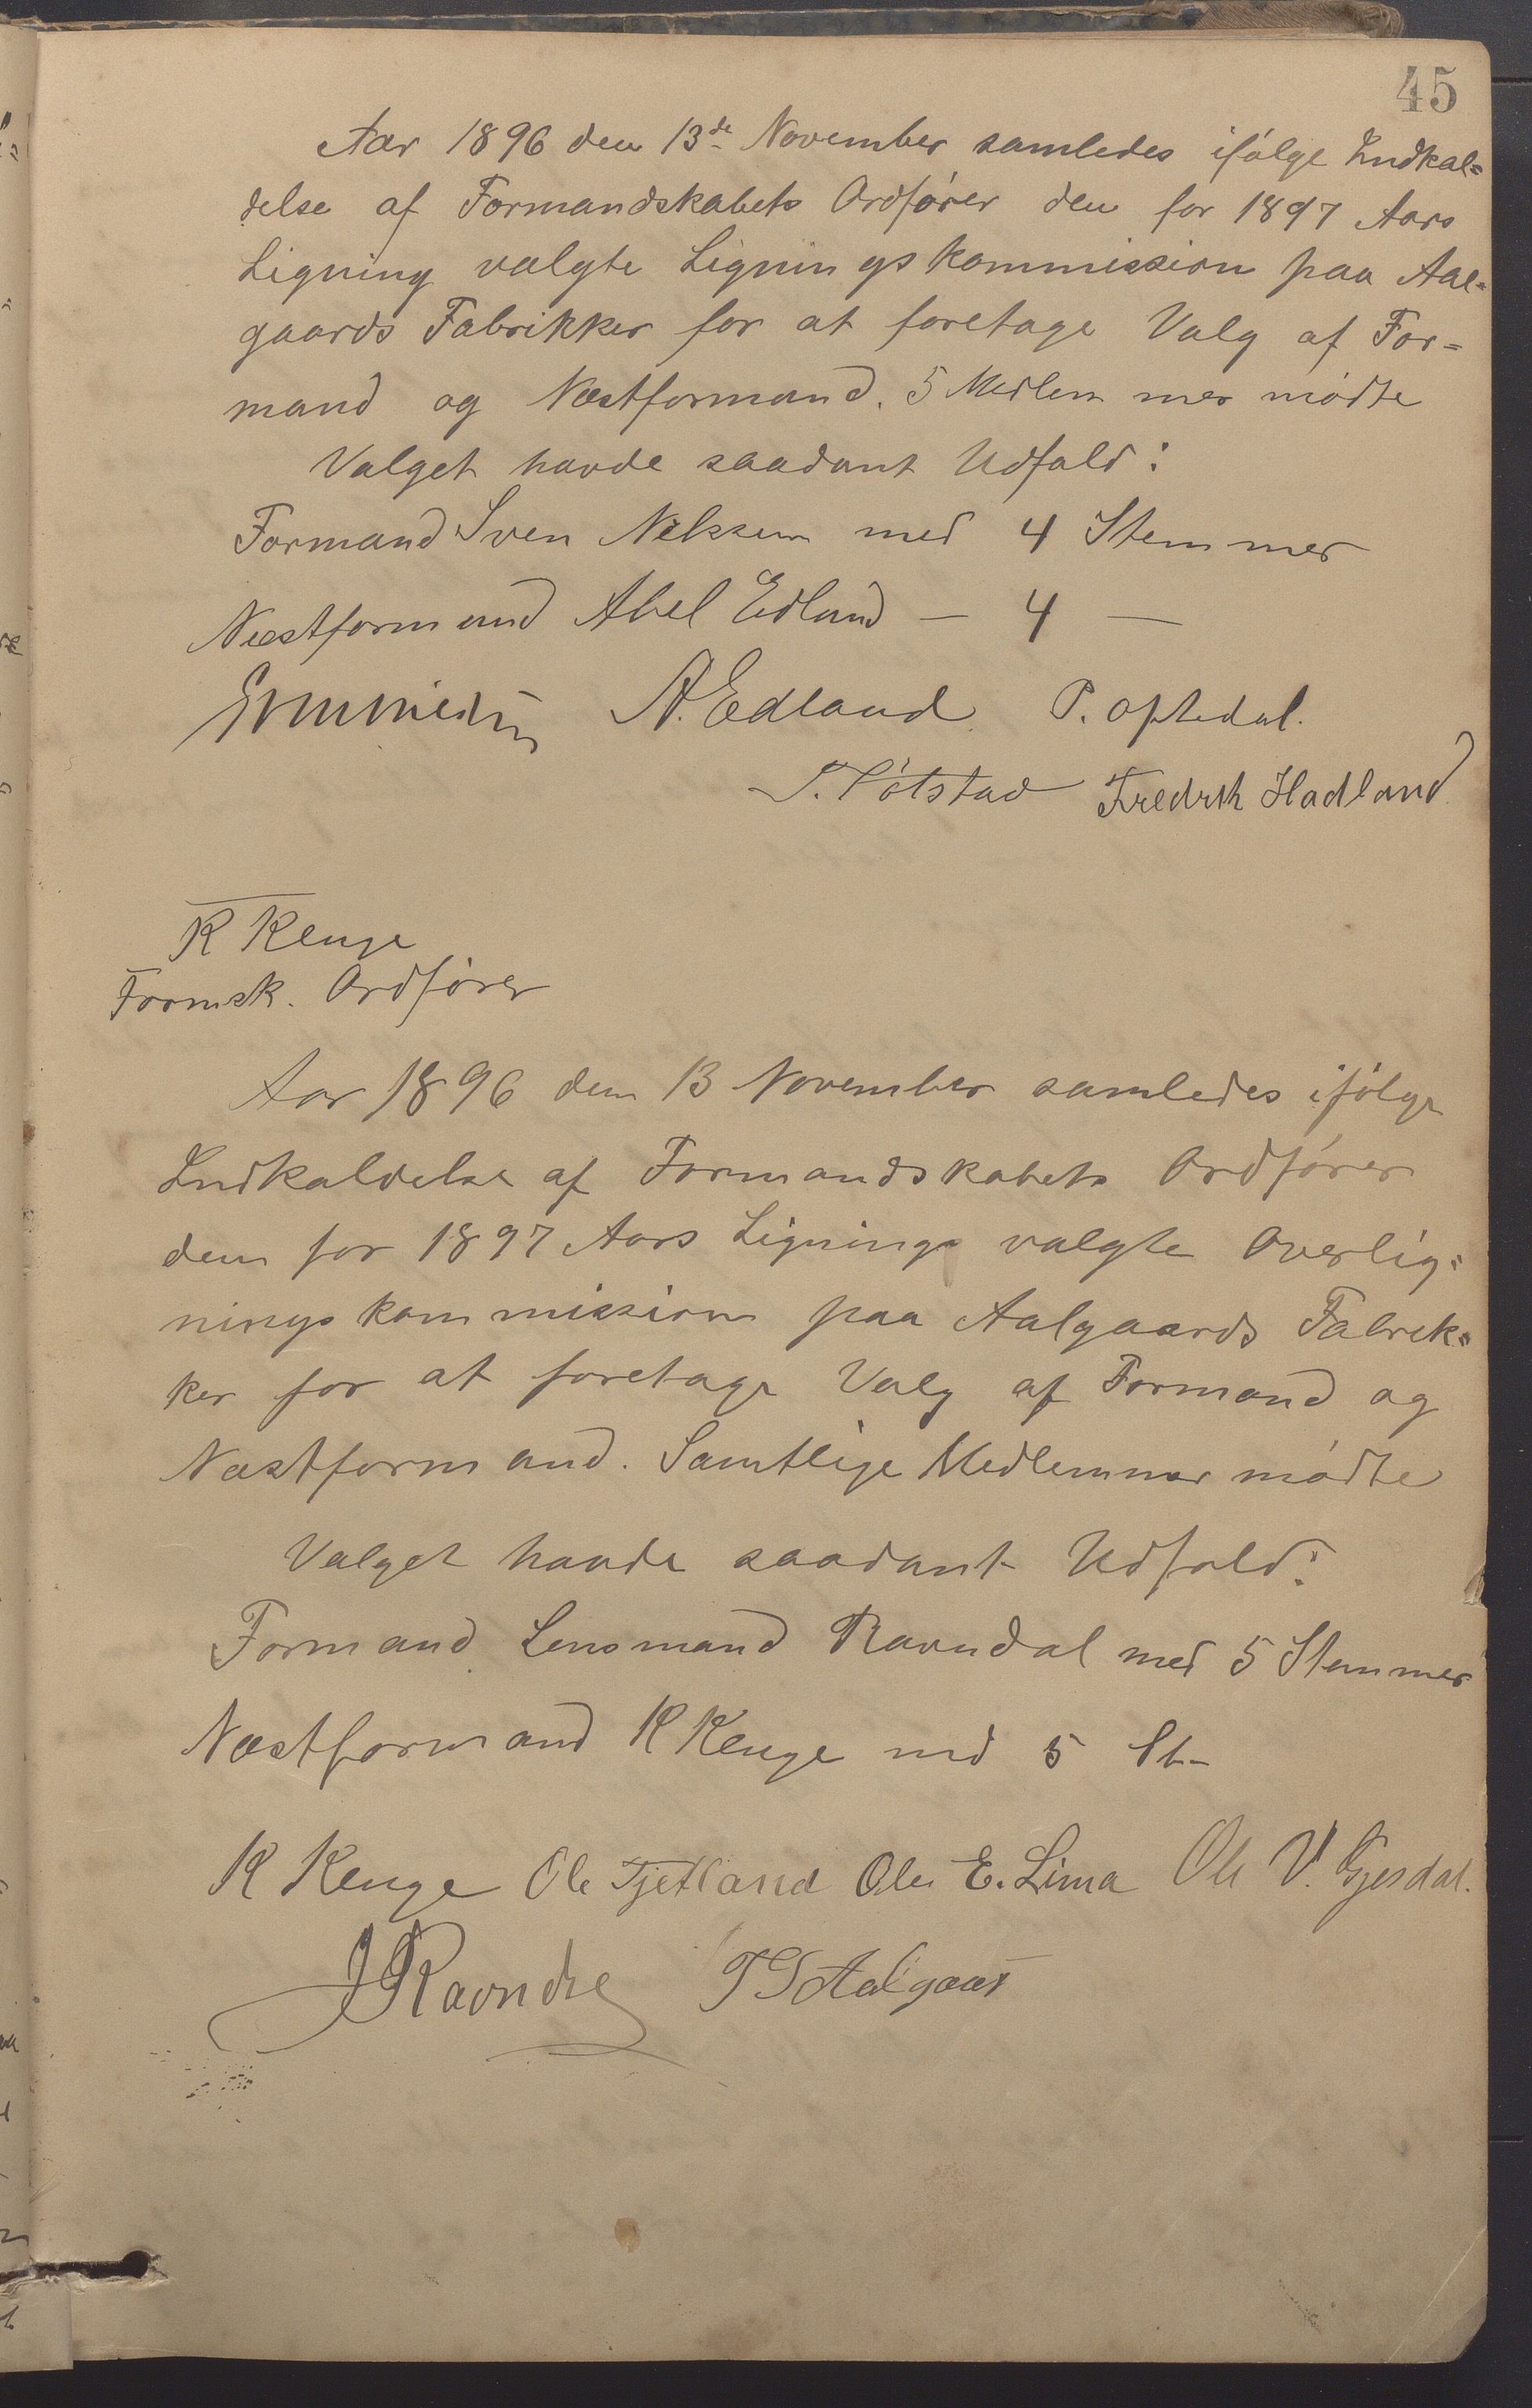 45
Aar 1896 den 13de November samledes ifølge Indkal=
delse af Formandskabets Ordfører den for 1897 Aars
Ligning valgte Ligningskommission paa Aal=
gaards Fabrikker for at foretage Valg af For=
mand og Næstformand. 5 Medlemmer mødte
Valget havde saadant Udfald:
Formand Sven Nilssen med 4 Stemmer
Næstformand Abel Edland — 4 —
A. Edland P. Optedal.
Fredrik Hadland
K Kenge
Formsk. Ordfører
Aar 1896 den 13 November samledes ifølge
Indkaldelse af Formandskabets Ordfører
den for 1897 Aars Lignings valgte Overlig=
ningskommission paa Aalgaards Fabrik=
ker for at foretage Valg af Formand og
Næstformand. Samtlige Medlemmer mødte
Valget havde saadant Udfald:
Formand Lensmand Ravndal med 5 Stemmer
Næstformand K Kenge med 5 St-
K Kenge Ole Tjetland Ole E. Lima Ole V. Gjesdal.
J Ravndal T S Aalgaard